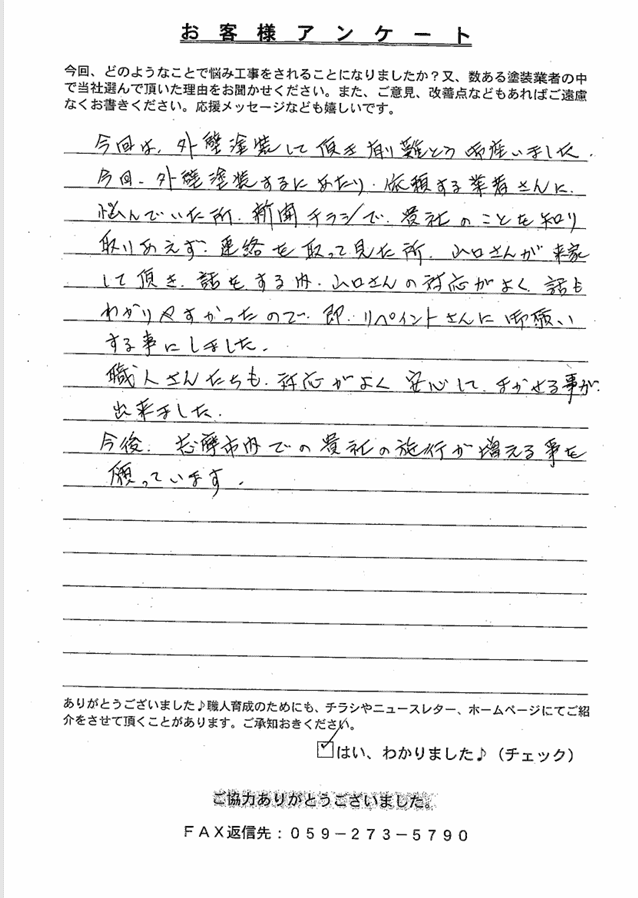 お客様アンケート
今回、どのようなことで悩み工事をされることになりましたか？又、数ある塗装業者の中
で当社選んで頂いた理由をお聞かせください。また、ご意見、改善点などもあればご遠慮
なくお書きください。応援メッセージなども嬉しいです。
今回は、外壁塗装して頂き有難とう御座いました。
今回、外壁塗装するにあたり、依頼する業者さんに、
悩んでいた所、新聞チラシで、貴社のことを知り
取りあえず、連絡を取って見た所、山口さんが来家
して頂き、話をする内、山口さんの対応がよく、話も
わかりやすかったので、即、リペイントさんに御願い
する事にしました。
職人さんたちも、対応がよく安心して、まかせる事が、
出来ました。
今後、志摩市内での貴社の施行が増える事を
願っています。
ありがとうございました♪職人育成のためにも、チラシやニュースレター、ホームページにてご紹
介をさせて頂くことがあります。ご承知おきください。
はい、わかりました♪（チェック）
ご協力ありがとうございました。
ＦＡＸ返信先：０５９－２７３－５７９０